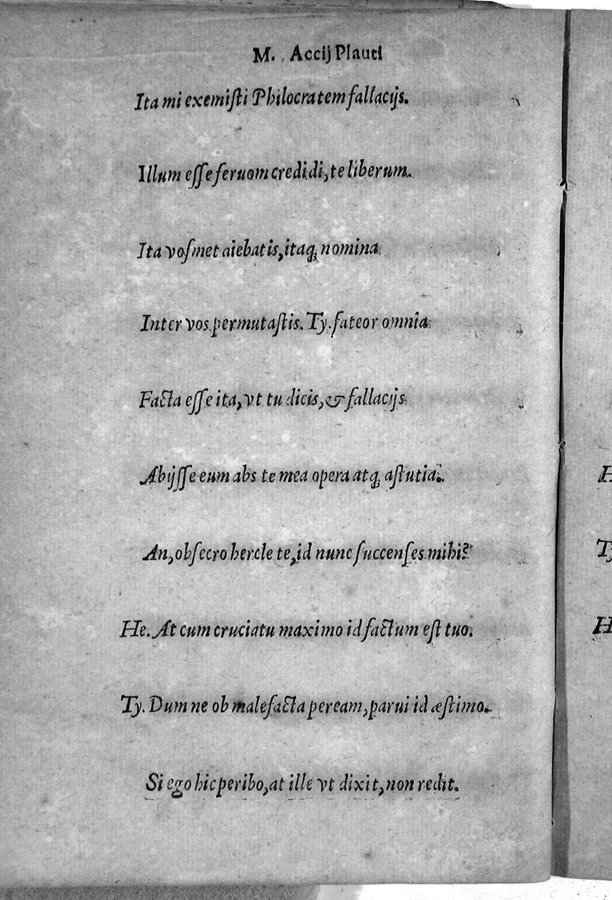 M. Accij Plauti
Ita mi exemiſti Philocratem fallacijs.
Illum eſſe ſeruom credidi, te liberum.
Ita voſmet aiebatis, itaq; nomina
Inter vos permutaſtis. Ty. fateor omnia
Facta eſſe ita, vt tu dicis, & fallacijs
Abijſſe eum abs te mea opera atq; aſtutia.
An, obſecro hercle te, id nunc ſuccenſes mihi?
He. At cum cruciatu maximo id factum eſt tuo.
Ty. Dum ne ob malefacta peream, parui id æſtimo.
Si ego hic peribo, at ille vt dixit, non redit.
H
Ty
H